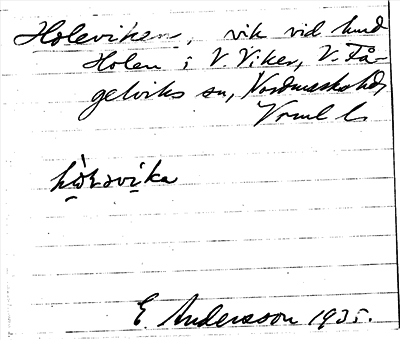 Holeviken, vik vid hmd
Holen i V. Viker, V. Få-
gelviks sn, Nordmarks hd,
Vrml l.
hò̩lǝvi̩ka
E. Andersson 1935.